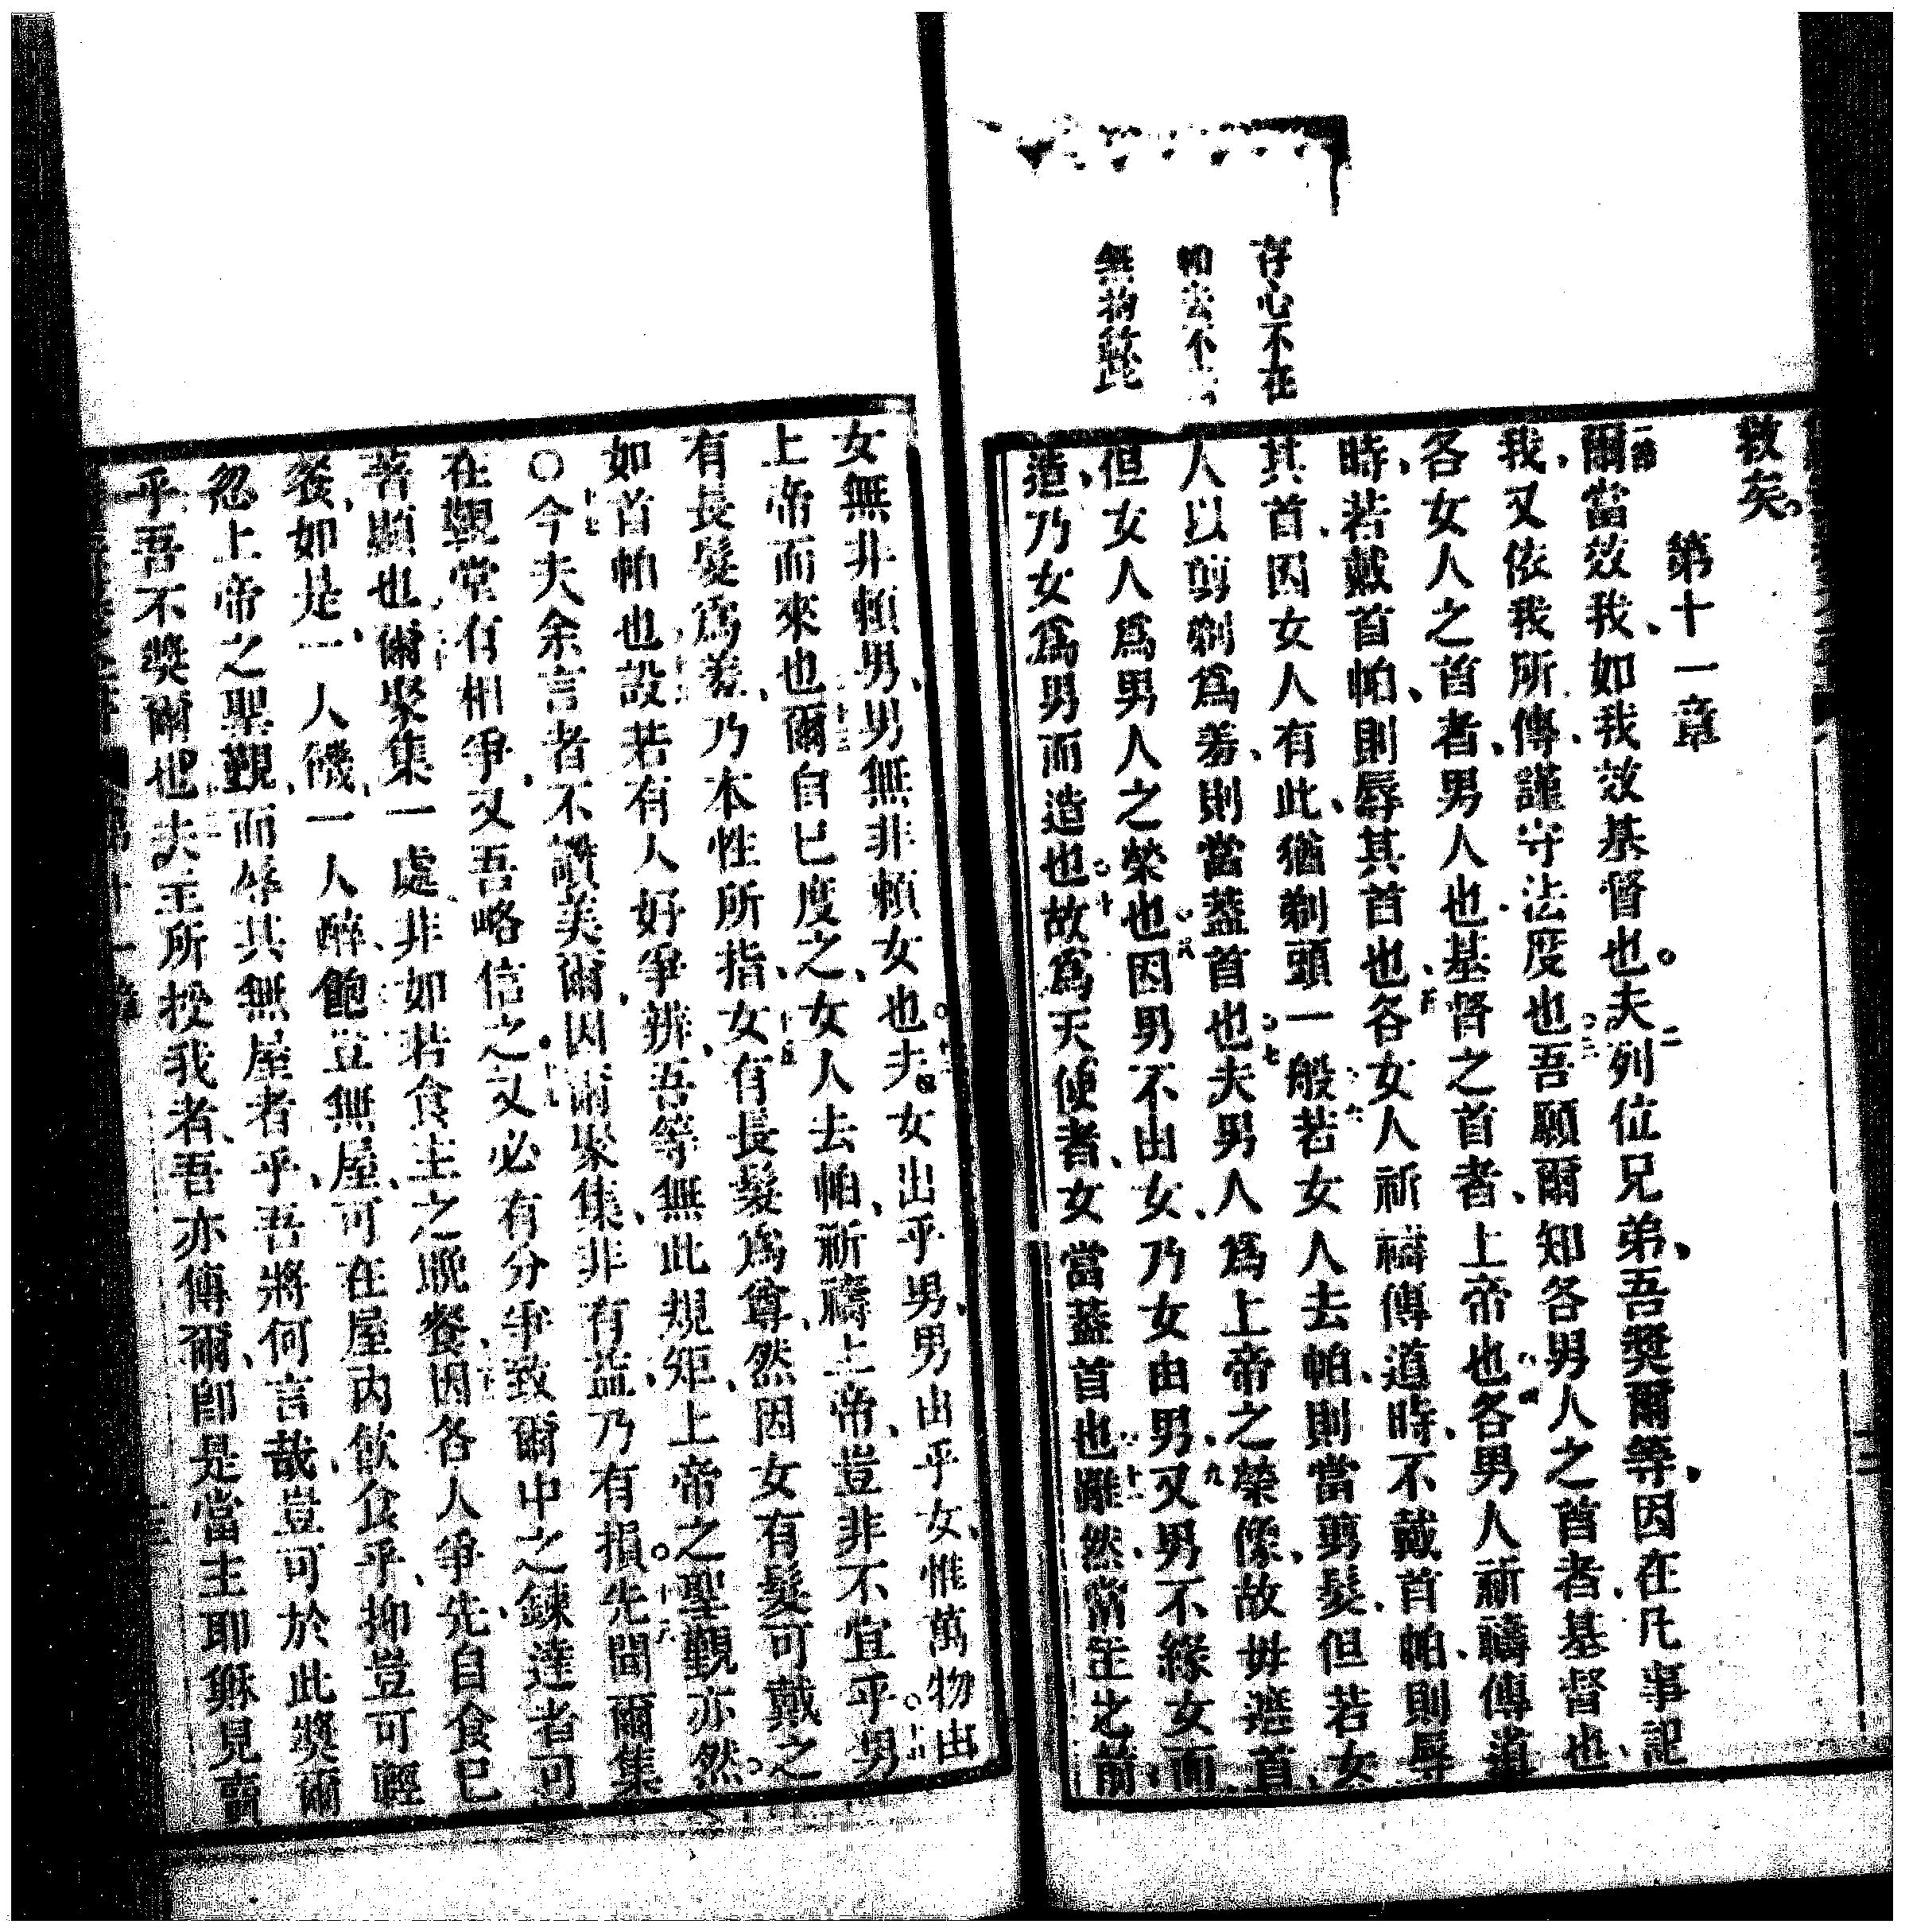 存心不在
帕去不
無物
救矣。
第十一章
一節爾當效我、如我效基督也。二夫列位兄弟、吾獎爾等、因在凡事記
我、又依我所傳、謹守法度也。三吾願爾知各男人之首者、基督也、
各女人之首者、男人也、基督之首者、上帝也。四各男人祈禱傳道
時、若戴首帕、則辱其首也。五各女人祈禱傳道時、不戴首帕、則辱
其首、因女人有此、猶剃頭一般。六若女人去帕、則當剪髮、但若女
人以剪剃爲羞、則當蓋首也。七夫男人爲上帝之榮像、故毋遮首、
但女人爲男人之榮也。八因男不由女、乃女由男、九又男不緣女而
造、乃女爲男而造也。十故爲天使者、女當蓋首也。十一雖然、當主之前、
女無非賴男、男無非賴女也。十二夫女出乎男、男出乎女、惟萬物由
上帝而來也。十三爾自己度之、女人去帕、祈禱上帝、豈非不宜乎。十四男
有長髮爲羞、乃本性所指、十五女有長髮爲尊、然因女有髮可戴之
如首帕也。十六設若有人好爭辨、吾等無此規矩、上帝之聖覲亦然。
○十七今夫余言者、不讚美爾、因爾聚集、非有益、乃有損。十八先聞爾集
在覲堂有相爭、又吾略信之。十九又必有分爭、致爾中之鍊達者可
著顯也。二十爾聚集一處、非如若食主之晚餐、二十一因各人爭先自食己
餐、如是、一人饑、一人醉飽。二十二豈無屋、可在屋內飲食乎、抑豈可輕
忽上帝之聖覲、而辱其無屋者乎、吾將何言哉、豈可於此獎爾
乎、吾不獎爾也。二十三夫主所授我者、吾亦傳爾、卽是當主耶穌見賣